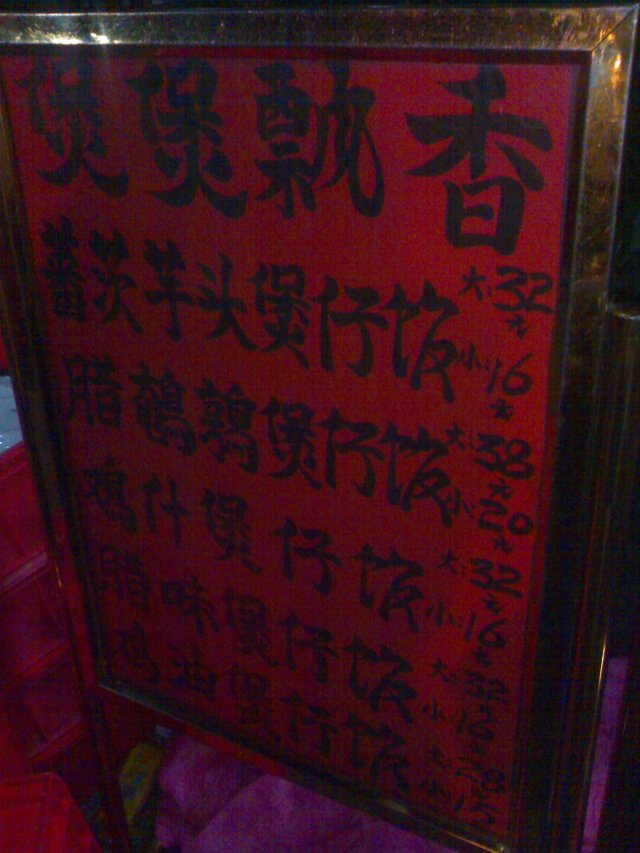 煲煲飘香
蕃茨芋头煲仔饭 大:32元 小:16元
腊鹌鹑煲仔饭 大:38元 小:20元
鸡什煲仔饭 大:32元 小:16元
腊味煲仔饭 大:32 小:16
鸡油煲仔饭 大:28 小:15